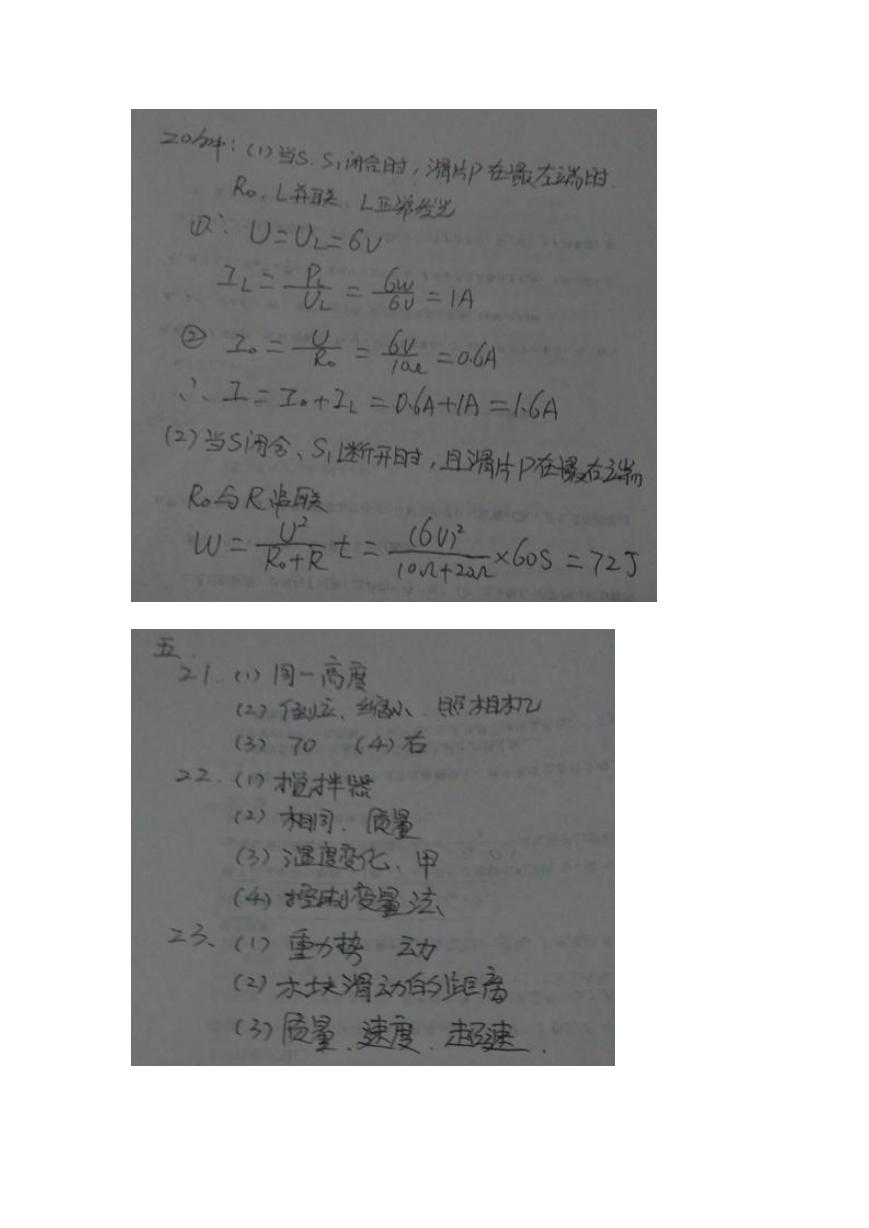 20解:(1)当S、S₁闭合时,滑片P在最左端时.
R₀、L并联、L正常发光
①∵ U=U_L=6V
I_L=P_L/U_L=6W/6V=1A
② I₀=U/R₀=6V/10Ω=0.6A
∴ I=I₀+I_L=0.6A+1A=1.6A
(2)当S闭合、S₁断开时,且滑片P在最右端
R₀与R串联
W=U²/(R₀+R) t=(6V)²/(10Ω+20Ω)×60S=72J
五、
21.(1)同一高度
(2)倒立、缩小、照相机
(3) 70 (4)右
22.(1)搅拌器
(2)相同、质量
(3)温度变化、甲
(4)控制变量法、
23、(1)重力势 动
(2)木块滑动的距离
(3)质量、速度、超速.